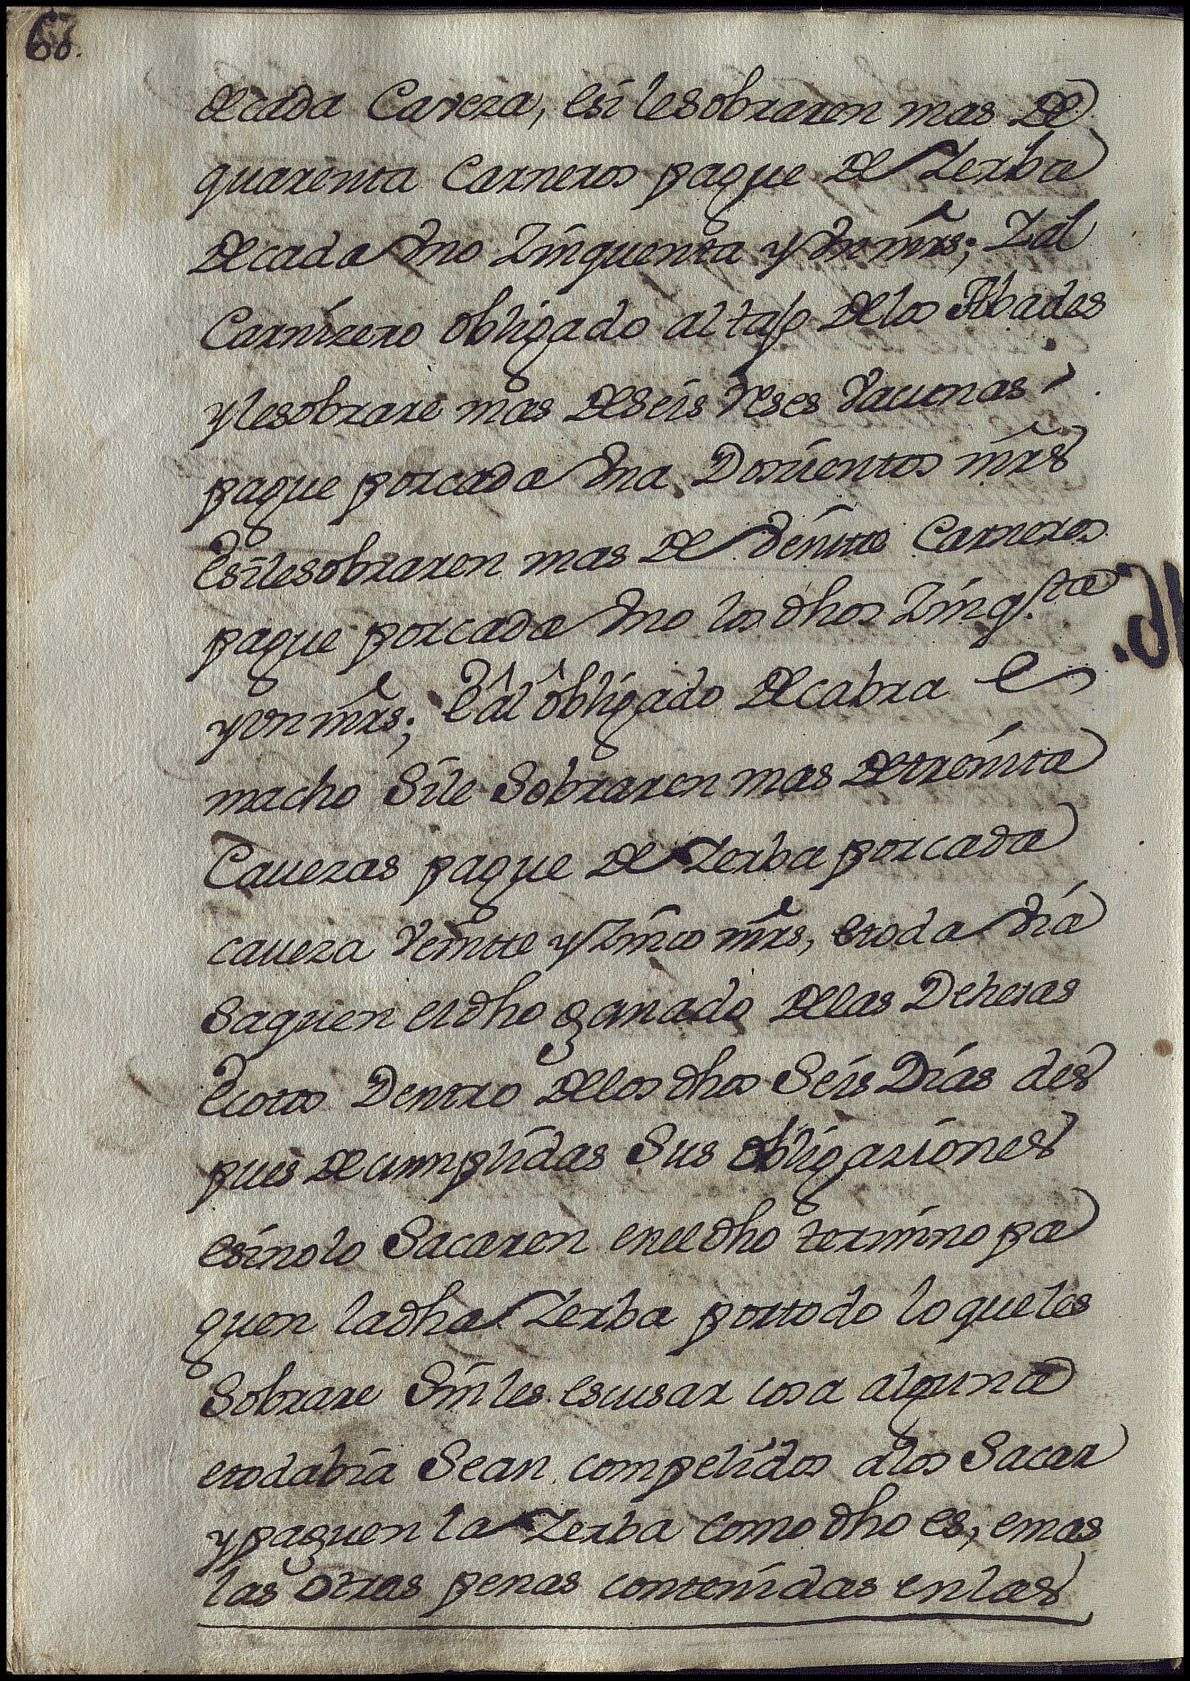 de cada Caveza, e si le sobraren mas de
quarenta Carneros pague de Yerba
de cada Vno Zinquenta y Vn mrs; Y al
Carnizero obligado al tajo de los Abades
y le sobrare mas de seis Reses Vacunas
pague por cada Vna Dosientos mrs
E si le sobraren mas de Veintte Carneros
pague por cada Vno los dhos Zinqta
y vn mrs; E al obligado de cabra e
macho Si le Sobraren mas de treinta
Cauezas pague de Yerba por cada
caueza Veintte y Zinco mrs, e toda Via
Saquen el dho ganado de las Dehesas
E cotos Dentro de los dhos Seis Dias des
pues de cumplidas Sus obligaziones
e si no lo Sacaren en el dho termino pa
guen la dha Yerba por todo lo que les
Sobrare Sin les escusar cosa alguna
e todabia Sean compelidos a los Sacar
y paguen la Yerba como dho es, e mas
las otras penas contenidas en las